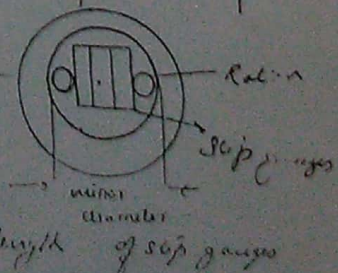 Roller
Slip gauges
minor
diameter
length of slip gauges